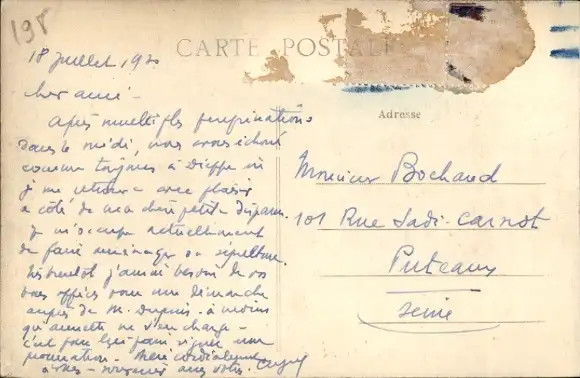 198
CARTE POSTALE
18 juillet 1920
Cher ami -
Après multiples pérégrinations
dans le midi, nous avons échoué
comme toujours à Dieppe où
je me retrouve avec plaisir
à côté de ma chère petite disparue.
Je m'occupe actuellement
de faire aménager sa sépulture.
bientôt j'aurai besoin de vos
bons offices pour une démarche
auprès de M. Dupuis - à moins
qu'annette ne s'en charge -
c'est pour lui faire signer une
procuration - Merci cordialement
à vous -
Adresse
Monsieur Bochard
101 Rue Sadi-Carnot
Puteaux
Seine